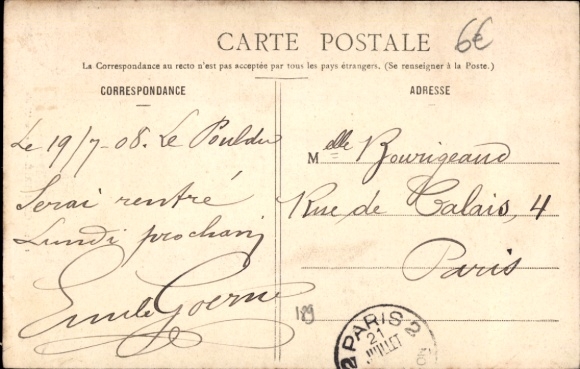 CARTE POSTALE
6€
La Correspondance au recto n'est pas acceptée par tous les pays étrangers. (Se renseigner à la Poste.)
CORRESPONDANCE
Le 19/7-08. Le Pouldu
Serai rentré
Lundi prochain
Emile Goerne
ADRESSE
Melle Bourigeaud
Rue de Calais, 4
Paris
189
2 PARIS 2
21
JUILLET
08